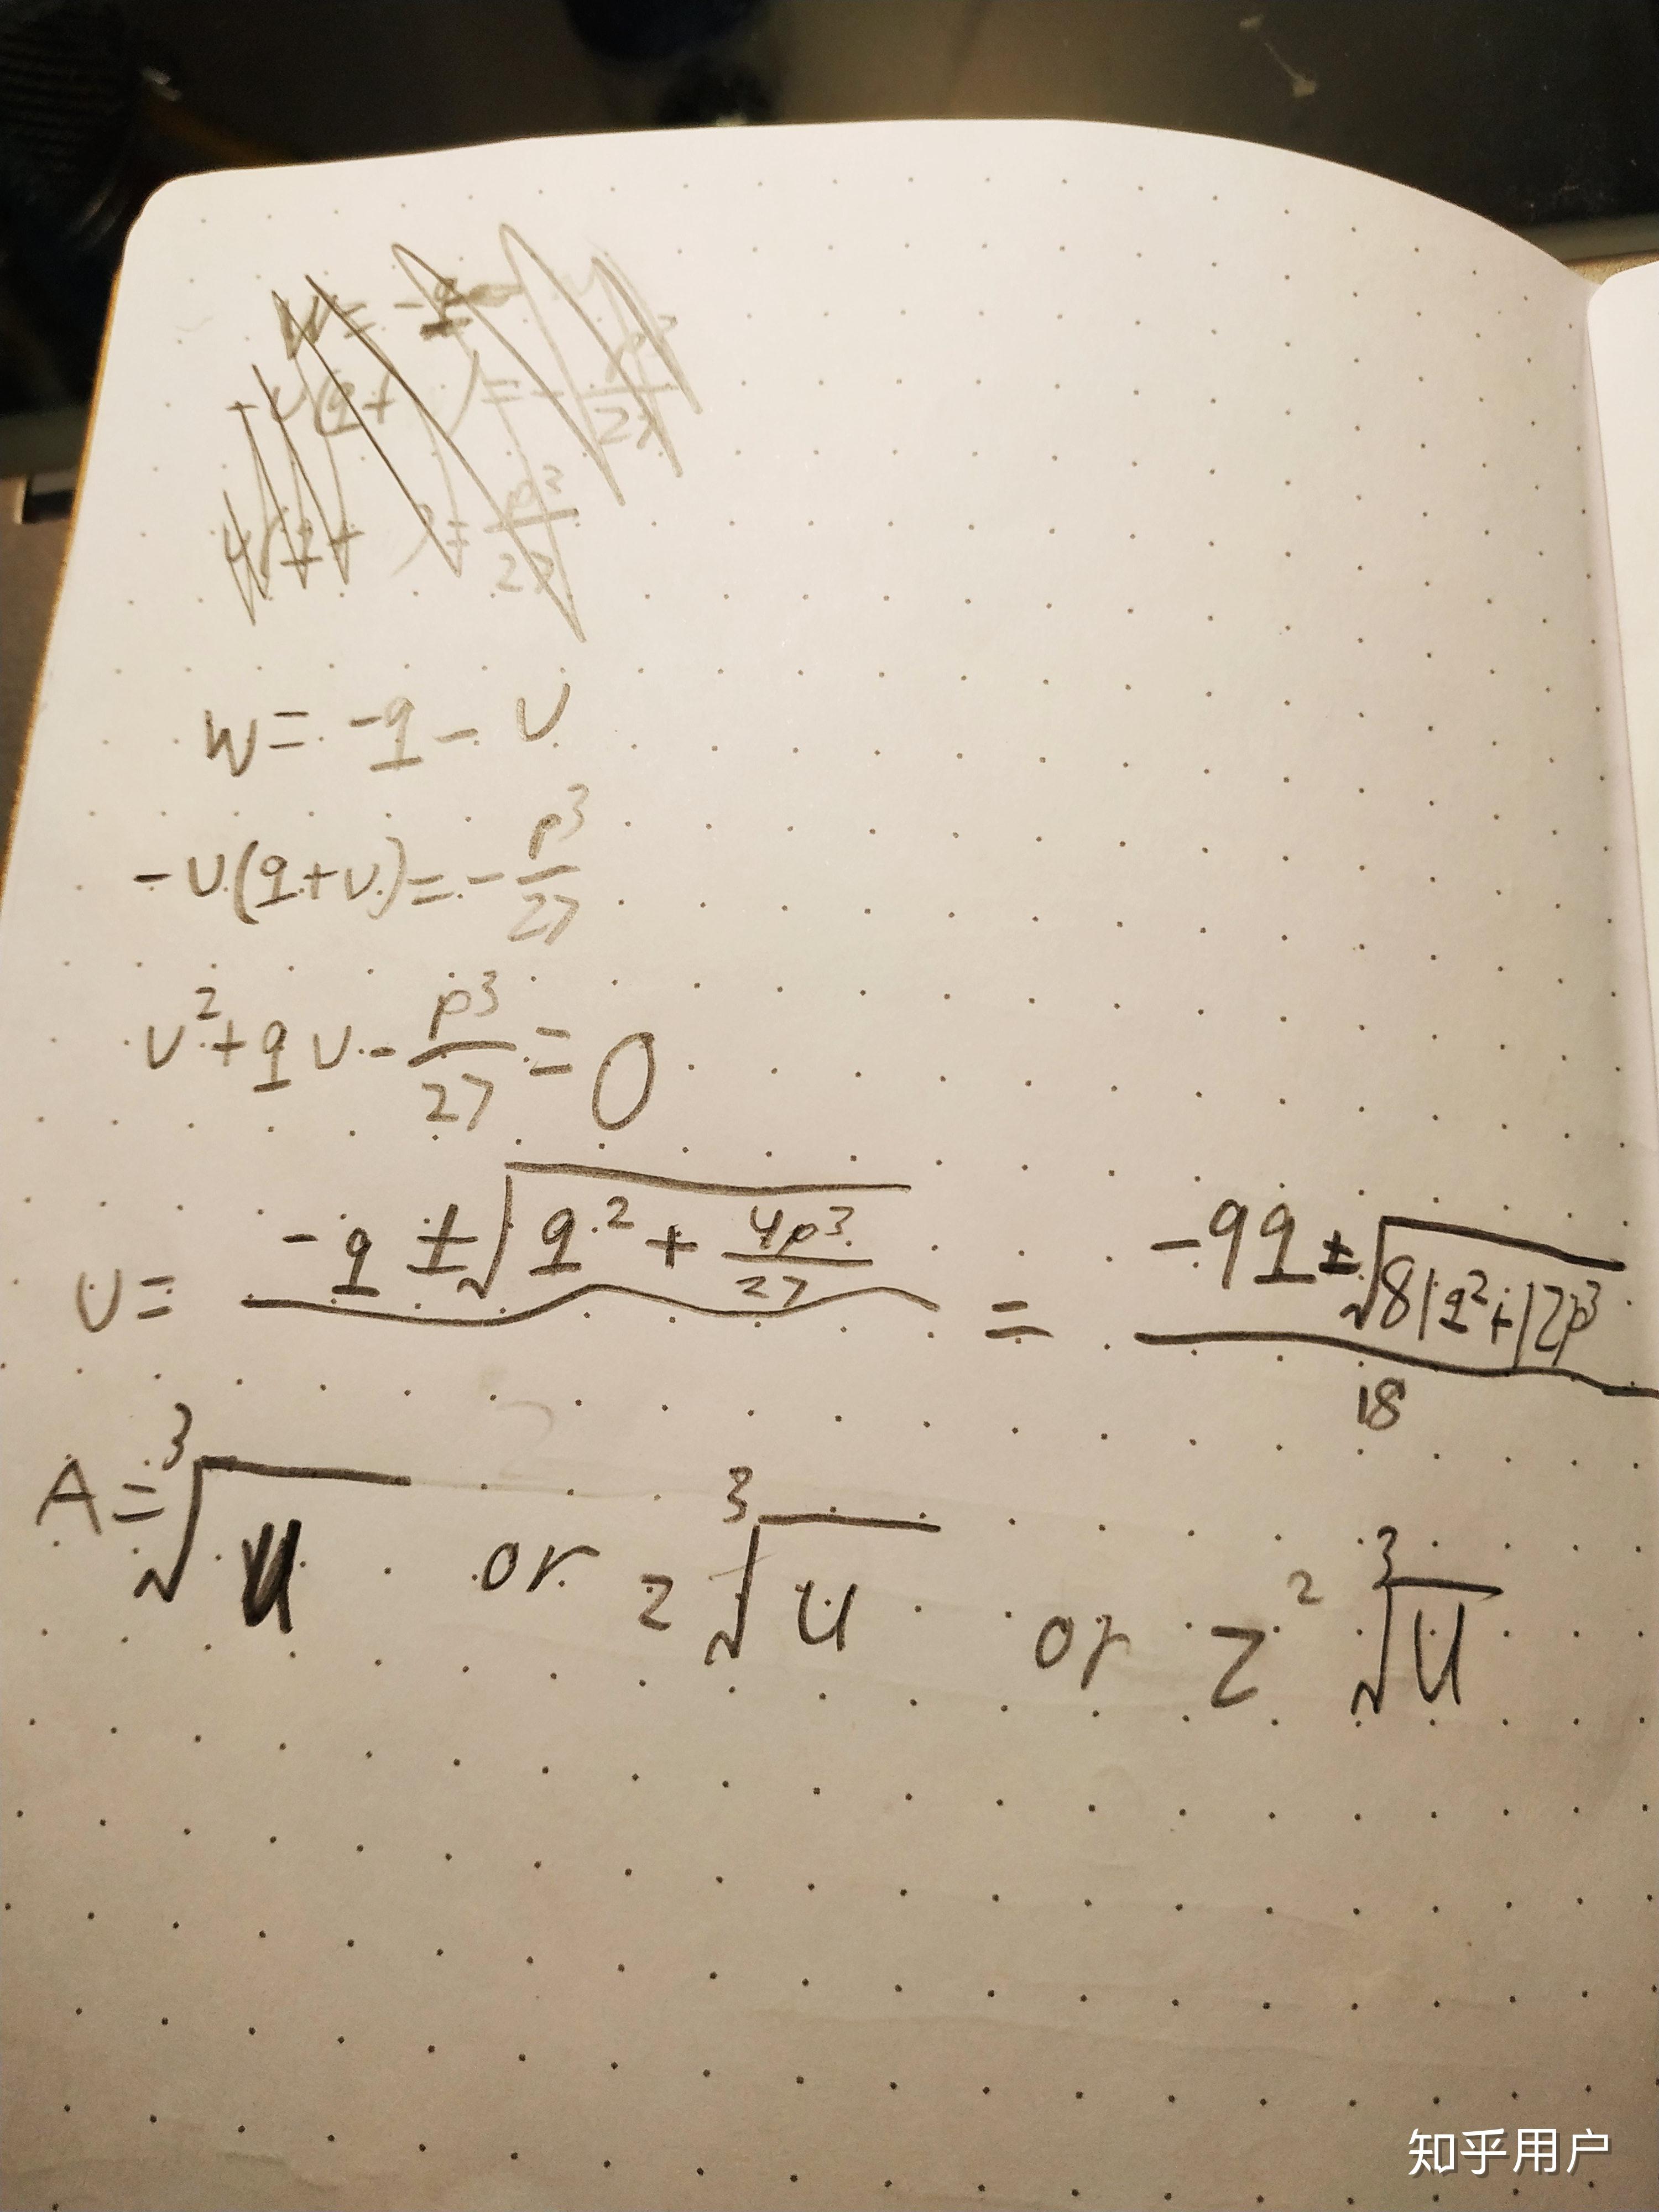 w = -q - v
-v(q+v) = -p³/27
v² + qv - p³/27 = 0
v = (-q ± √(q² + 4p³/27)) / = (-9q ± √(81q² + 12p³)) / 18
A = ³√u or z ³√u or z² ³√u
知乎用户